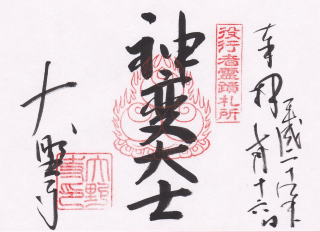 奉拝
平成二十年
月十六日
役行者霊蹟札所
神変大士
大野寺